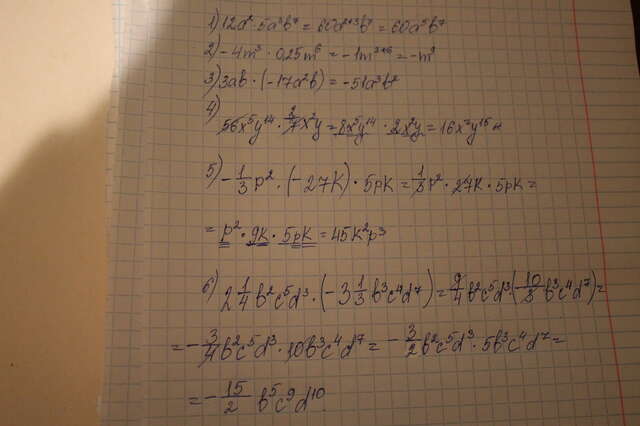 1) 12a²·5a³b⁷ = 60a²⁺³b⁷ = 60a⁵b⁷
2) -4m³·0,25m⁶ = -1m³⁺⁶ = -m⁹
3) 3ab·(-17a²b) = -51a³b²
4)
56x⁵y¹⁴·2/7x²y = 8x⁵y¹⁴·2x²y = 16x⁷y¹⁵
5) -1/3p²·(-27k)·5pk = 1/3p²·27k·5pk =
= p²·9k·5pk = 45k²p³
6) 2 1/4b²c⁵d³·(-3 1/3b³c⁴d⁷) = 9/4b²c⁵d³(-10/3b³c⁴d⁷) =
= -3/4b²c⁵d³·10b³c⁴d⁷ = -3/2b²c⁵d³·5b³c⁴d⁷ =
= -15/2 b⁵c⁹d¹⁰.